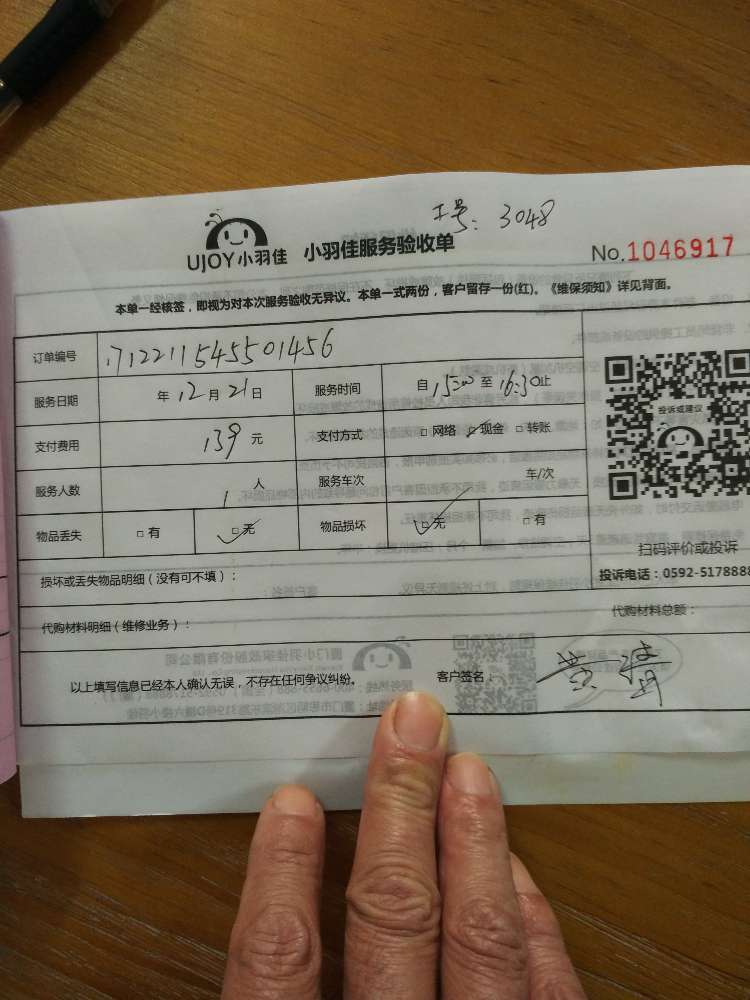 工号：3048
UJOY小羽佳 小羽佳服务验收单
No.1046917
本单一经核签，即视为对本次服务验收无异议。本单一式两份，客户留存一份(红)。《维保须知》详见背面。
订单编号 171221154550１456
服务日期 年12月21日 服务时间 自15:00至16:30止
支付费用 139元 支付方式 □网络 ✓现金 □转账
服务人数 1人 服务车次 车/次
物品丢失 □有 ☑无 物品损坏 ☑无 □有
投诉或建议
扫码评价或投诉
投诉电话：0592-5178888
损坏或丢失物品明细（没有可不填）：
代购材料明细（维修业务）： 代购材料总额：
以上填写信息已经本人确认无误，不存在任何争议纠纷。 客户签名：